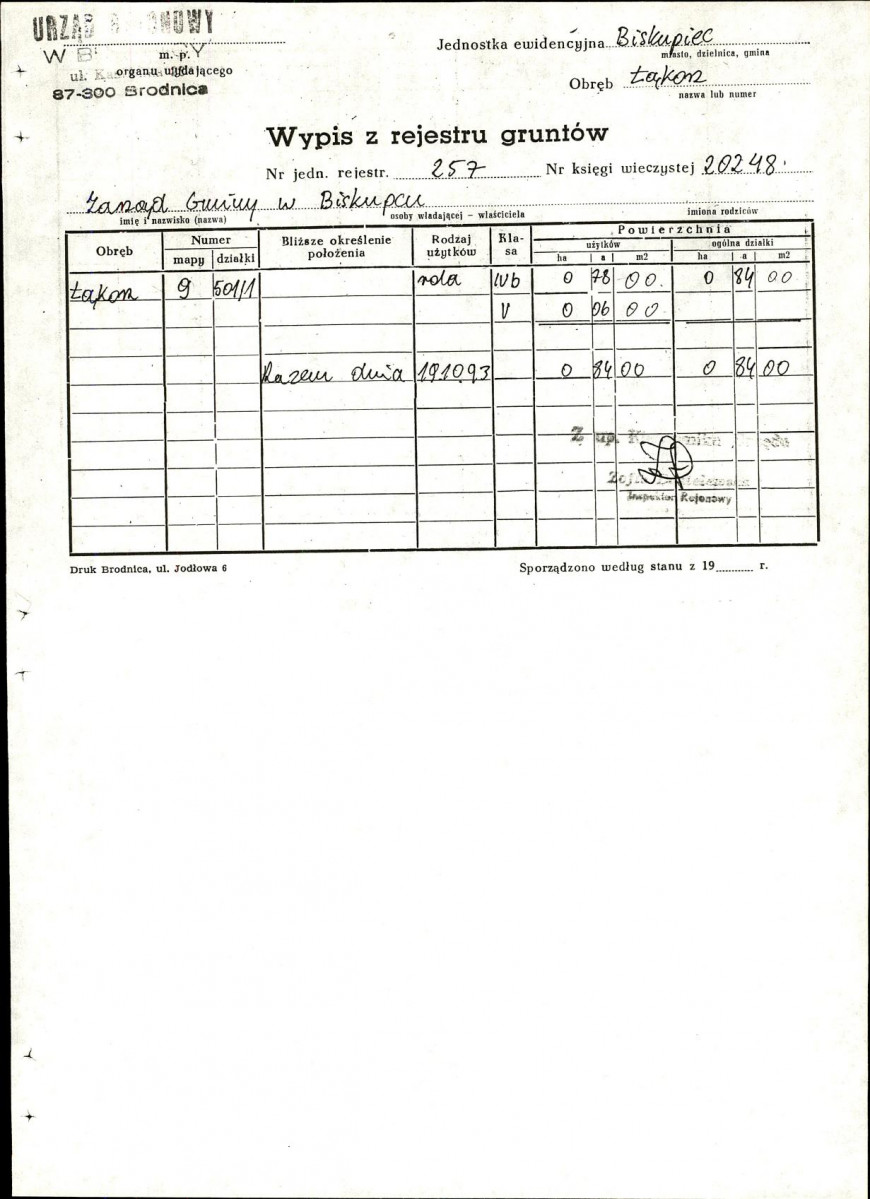 URZĄD
W
m. p.
ul.
organu wydającego
87-300 Brodnica
Jednostka ewidencyjna Biskupiec
miasto, dzielnica, gmina
Obręb Łąkorz
nazwa lub numer
Wypis z rejestru gruntów
Nr jedn. rejestr. 257 Nr księgi wieczystej 20248
Zarząd Gminy w Biskupcu
imię i nazwisko (nazwa) osoby władającej – właściciela imiona rodziców
Obręb Numer Bliższe określenie położenia Rodzaj użytków Kla-sa Powierzchnia
mapy działki użytków ogólna działki
ha a m2 ha a m2
Łąkorz 9 501/1 rola IVb 0 78 00 0 84 00
V 0 06 00
Razem dnia 19.10.93 0 84 00 0 84 00
Z up.
Inspektor Rejonowy
Druk Brodnica, ul. Jodłowa 6 Sporządzono według stanu z 19 r.